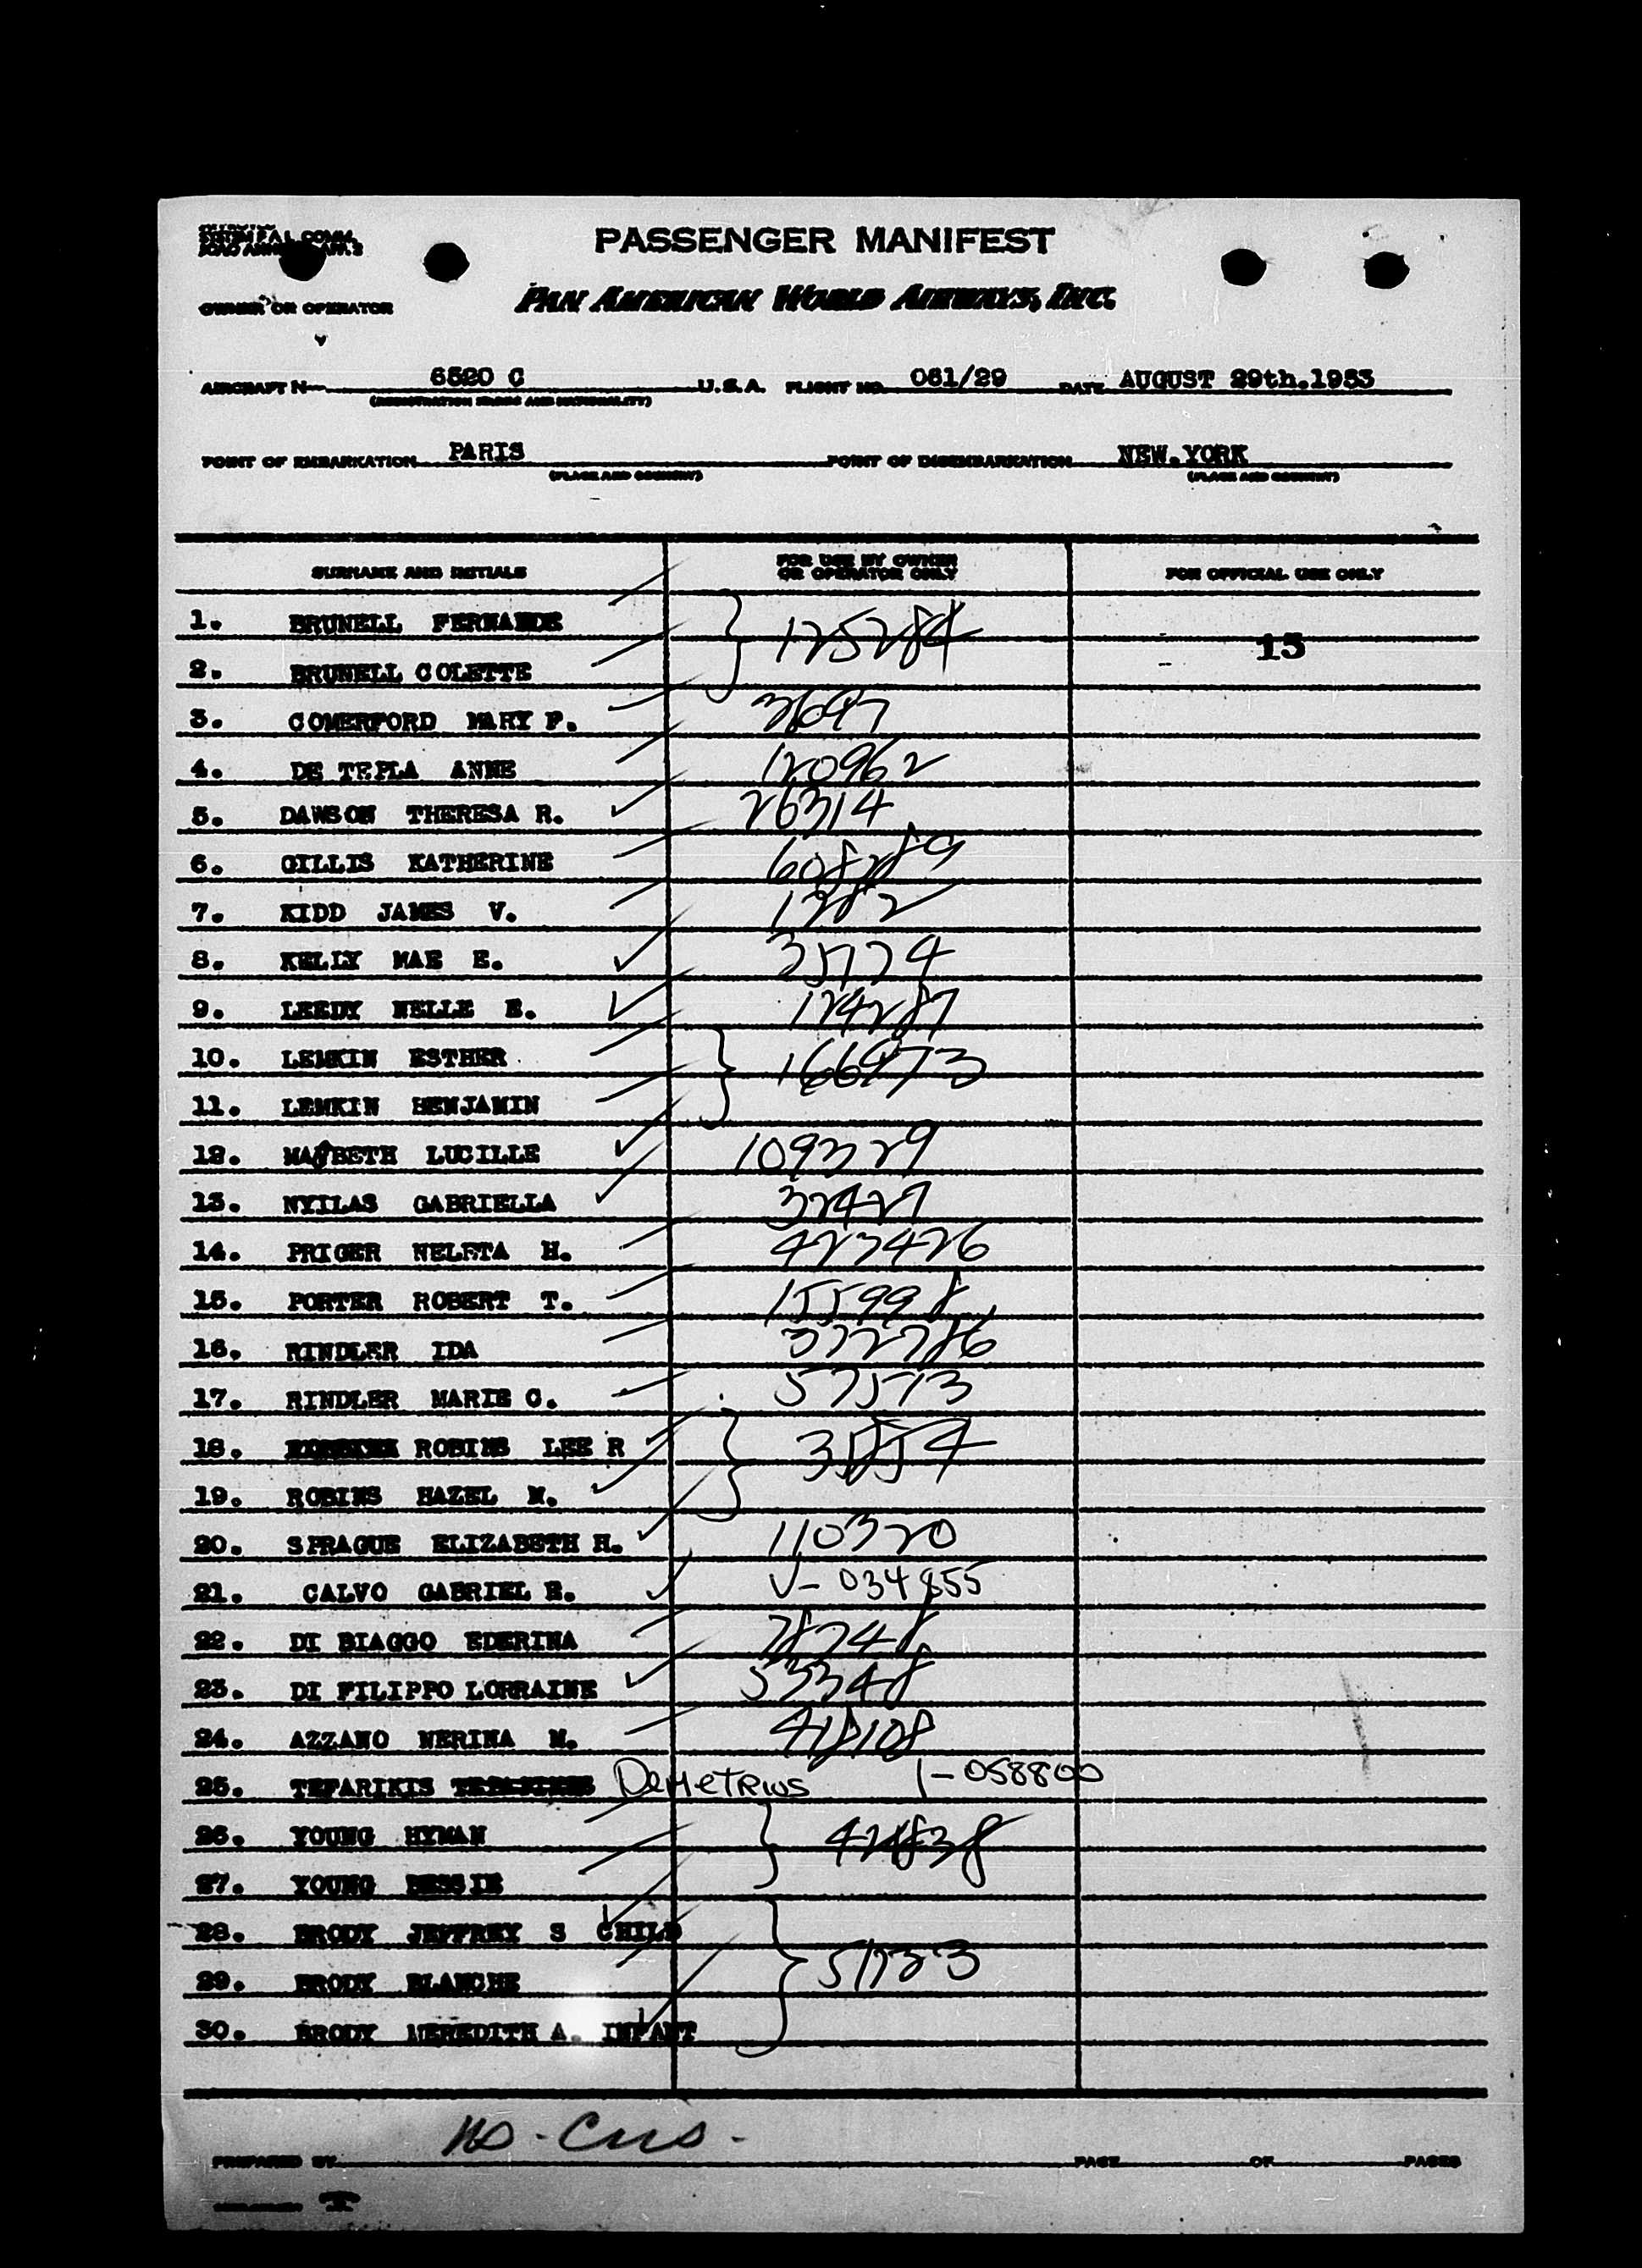 PASSENGER MANIFEST
OWNER OR OPERATOR PAN AMERICAN WORLD AIRWAYS, INC.
AIRCRAFT N 6520 C U.S.A. FLIGHT NO. 061/29 DATE AUGUST 29th.1953
(REGISTRATION MARKS AND NATIONALITY)
POINT OF EMBARKATION PARIS POINT OF DISEMBARKATION NEW.YORK
(PLACE AND COUNTRY) (PLACE AND COUNTRY)
SURNAME AND INITIALS FOR USE BY OWNER OR OPERATOR ONLY FOR OFFICIAL USE ONLY
1. BRUNELL FERNANDE 125284
13
2. BRUNELL COLETTE
3. COMERFORD MARY F. 3697
4. DE TEPLA ANNE 120962
5. DAWSON THERESA R. 26314
6. GILLIS KATHERINE 608289
7. KIDD JAMES V. 1382
8. KELLY MAE E. 35724
9. LEEDY NELLE E. 124287
10. LEMKIN ESTHER 166973
11. LEMKIN BENJAMIN
12. MACBETH LUCILLE 109329
13. NYILAS GABRIELLA 32427
14. PRIGER NELETA H. 423426
15. PORTER ROBERT T. 155998
16. RINDLER IDA 372786
17. RINDLER MARIE C. 57573
18. ROBINS LEE R 35854
19. ROBINS HAZEL M.
20. SPRAGUE ELIZABETH H. 110320
21. CALVO GABRIEL E. V-034855
22. DI BIAGGO EDERINA 78748
23. DI FILIPPO LORRAINE 53348
24. AZZANO NERINA M. 418108
25. TEFARIKIS DEMETRIUS 1-058800
26. YOUNG HYMAN 424838
27. YOUNG BESSIE
28. BRODY JEFFREY S CHILD
29. BRODY BLANCHE 51723
30. BRODY MEREDITH A. INFANT
PREPARED BY PAGE OF PAGES